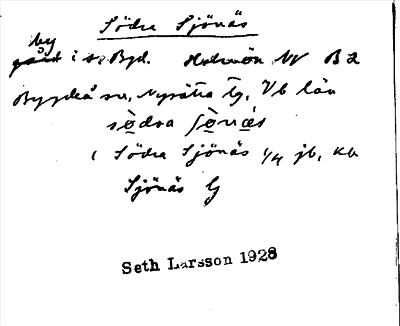 Södra Sjönäs
by
gård i s. Byd. Holmön NV B 2
Bygdeå sn, Nysätra tg, Vb län
södra
( Södra Sjönäs 1/4 jb, kb
Sjönäs G
Seth Larsson 1928